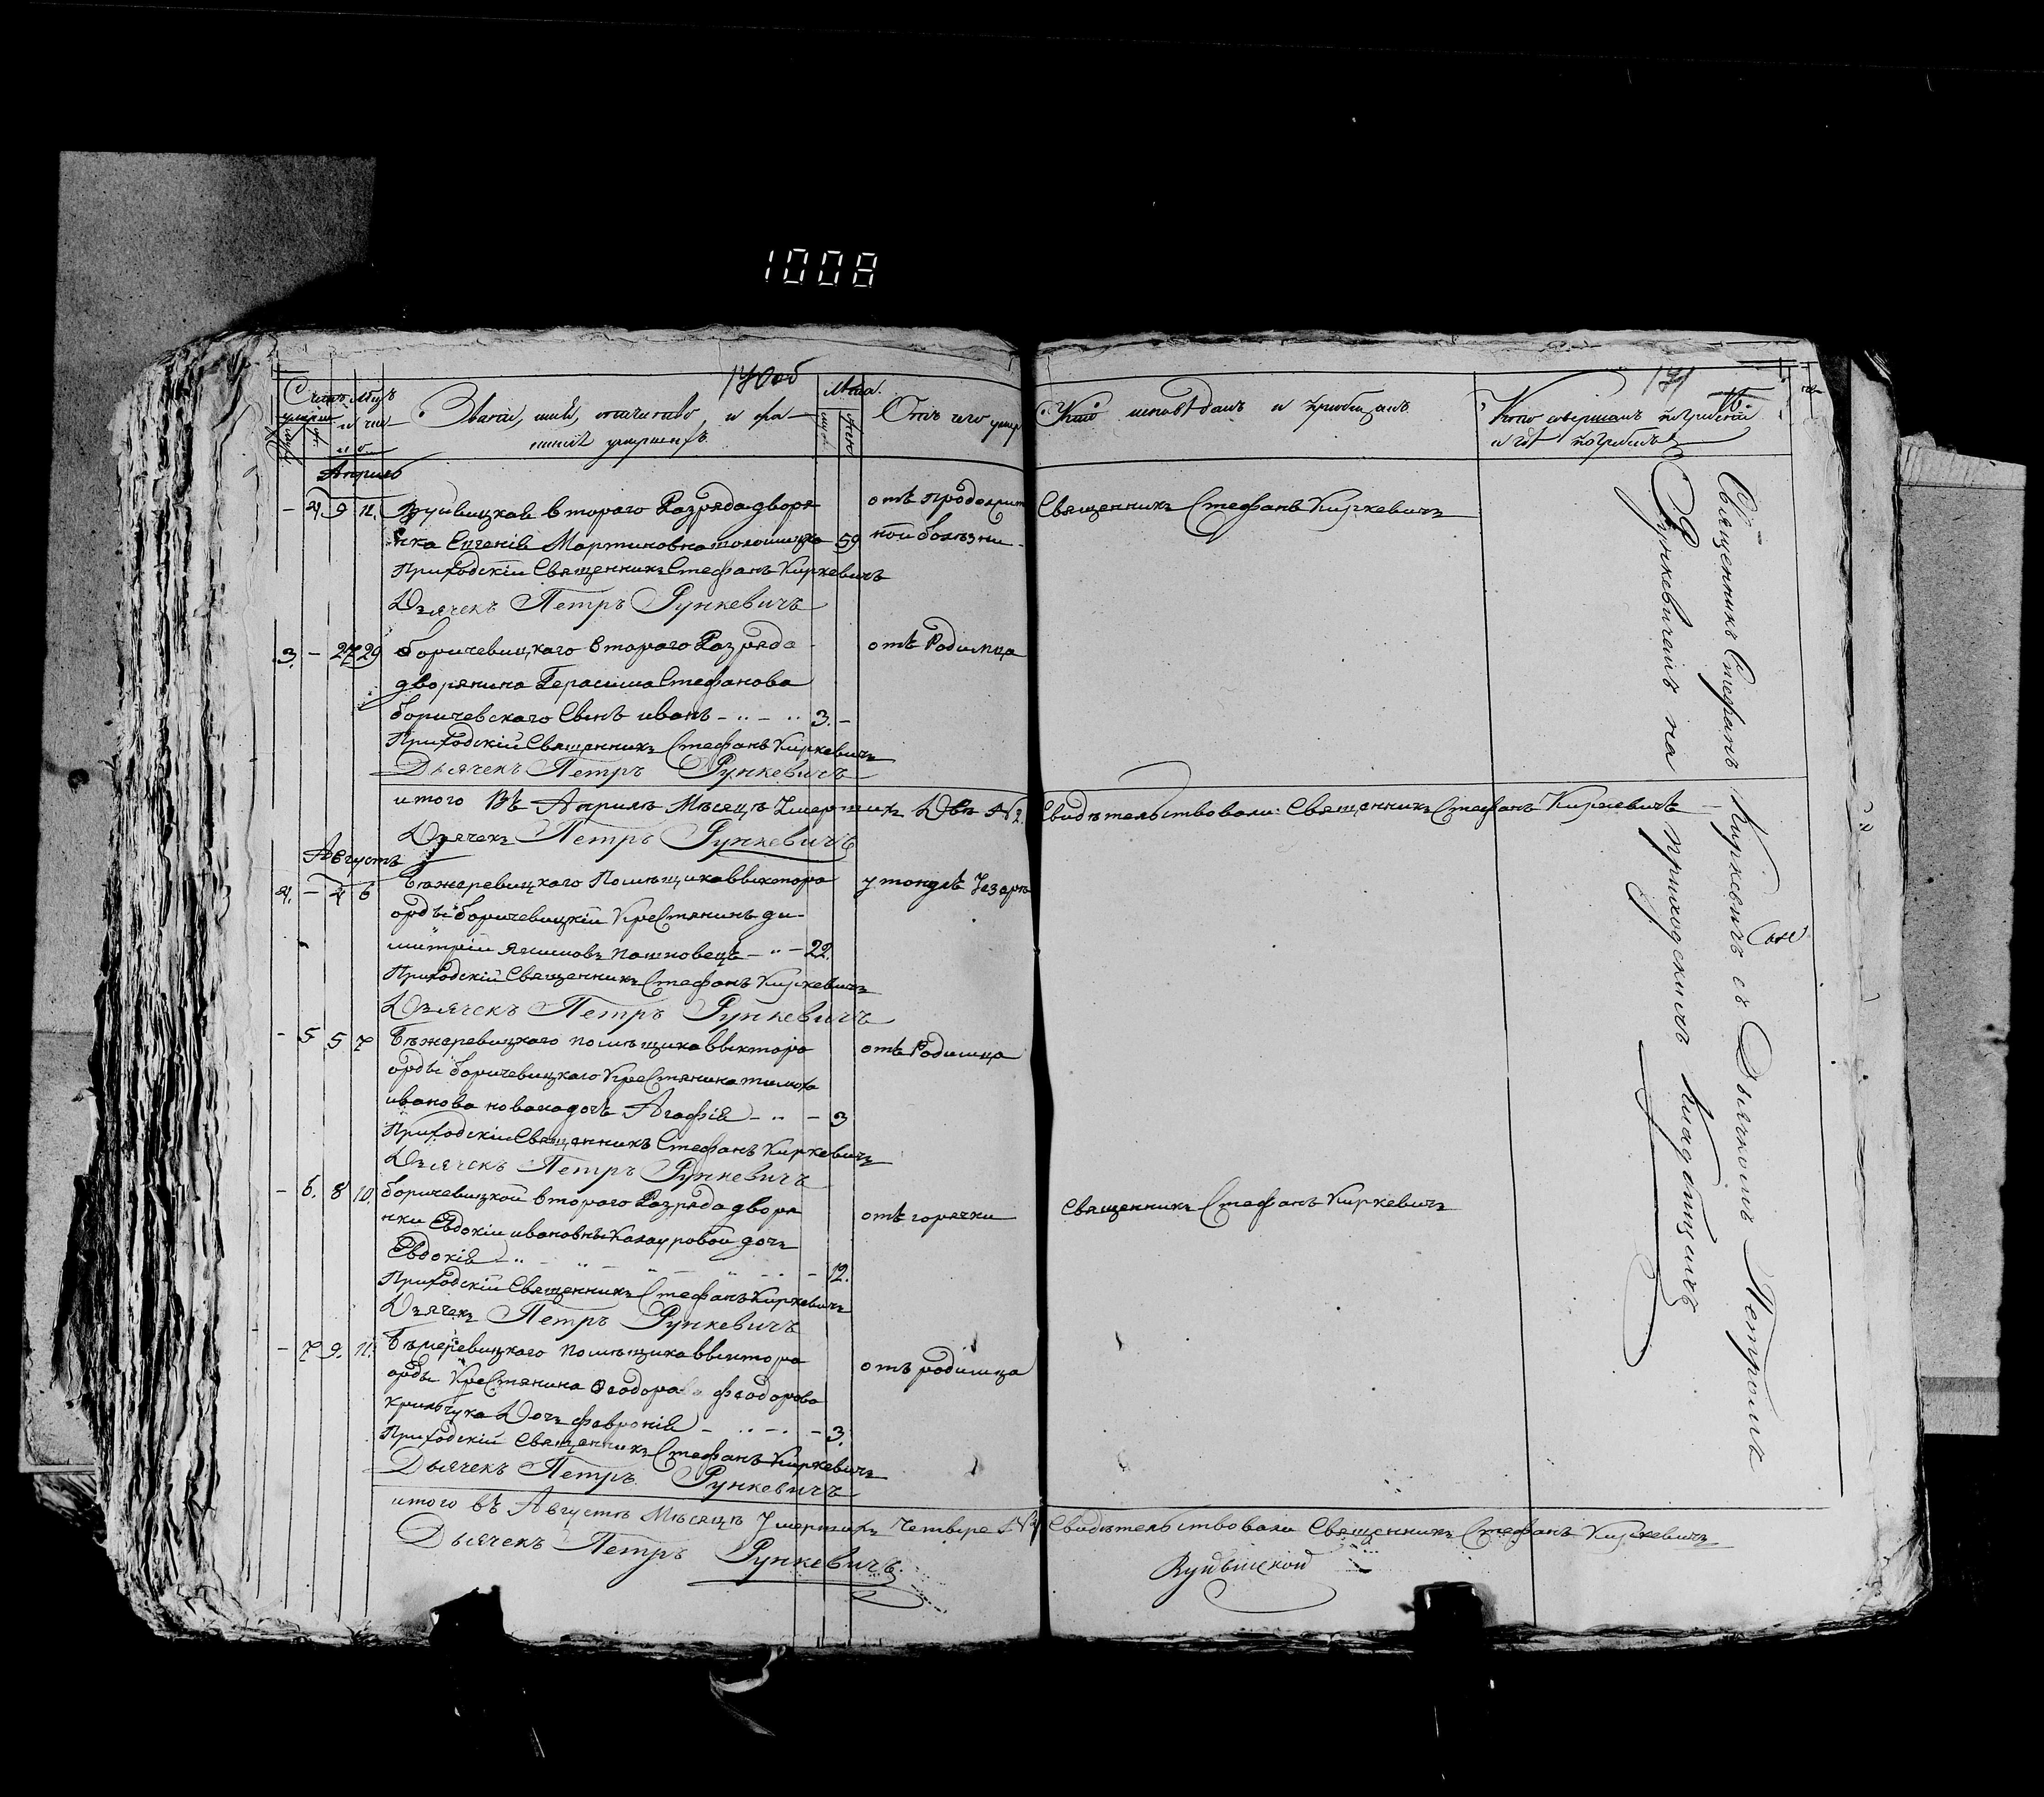 1008
170об
171
Счетъ
умершихъ
Мѣсяцъ и число
Званіе, имя, отчество и фамилія умершихъ.
Лѣта.
Отъ чего умеръ
Кто исповѣдалъ и приобщалъ.
Кто совершалъ погребеніе
и гдѣ погребены
Апрель
- 2. 9 11. второго Разряда дворя
нка Евгенія Мартиновна 59
отъ продолжит
ной болѣзни
Священникъ Стефанъ Киркевичъ
Приходскій Священникъ Стефанъ Киркевичъ
Дзячекъ Петръ Рункевичъ
3. - 27 29 боричевицкаго второго Разряда
дворянина Герасима Стефанова
боричевскаго Сынъ иванъ - 3. -
отъ Родимца
Приходскій Священникъ Стефанъ Киркевичъ
Дьячекъ Петръ Рункевичъ
итого Въ Априлѣ Мѣсяцѣ Умершихъ Двѣ № 2. Свидѣтельствовали: Священникъ Стефанъ Киркевичъ
Дзячекъ Петръ Рункевичъ
Августъ
4. - 4 6 Помѣщика викторо
орды боричевицкій Крестянинъ ди-
митрій Якимовъ пашковецъ - 22.
Приходскій Священникъ Стефанъ Киркевичъ
Дзячекъ Петръ Рункевичъ
- 5 5 7 помѣщика викторо
орды боричевицкаго Крестянина тимоха
иванова новака дочъ Агафія - 3
отъ Родимца
Приходскій Священникъ Стефанъ Киркевичъ
Дзячекъ Петръ Рункевичъ
- 6. 8 10. боричевицкой второго Разряда дворя
нки Евдокіи ивановны дочъ
Евдокія - 12.
отъ горячки
Священникъ Стефанъ Киркевичъ
Приходскій Священникъ Стефанъ Киркевичъ
Дзячекъ Петръ Рункевичъ
- 7 9. 11. помѣщика викторо
орды Крестянина феодорова
Крильчука Дочъ февронія - 3.
отъ родимца
Приходскій Священникъ Стефанъ Киркевичъ
Дьячекъ Петръ Рункевичъ
итого въ Августѣ Мѣсяцѣ Умершихъ Четыре № 4 Свидѣтельствовали Священникъ Стефанъ Киркевичъ
Дьячекъ Петръ Рункевичъ
Священникъ Стефанъ Киркевичъ съ Дьячкомъ Петромъ
Рункевичамъ на приходскимъ Кладбищѣ